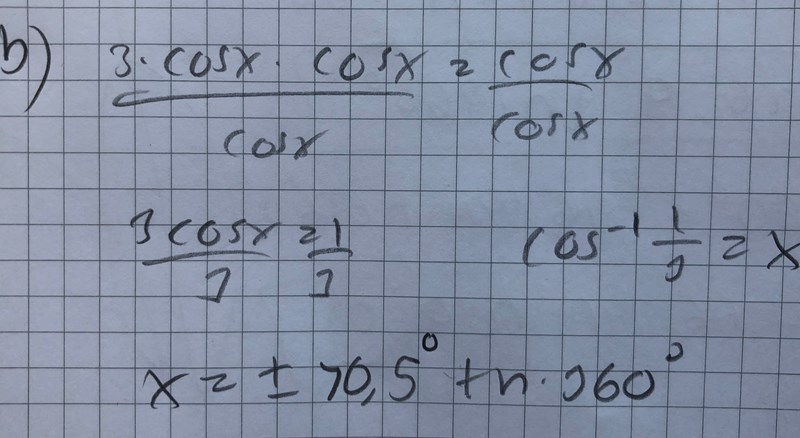 b) 3·cosx·cosx = cosx
cosx cosx
3cosx = 1 cos⁻¹ 1 = x
3 3 3
x = ± 70,5° + n·360°